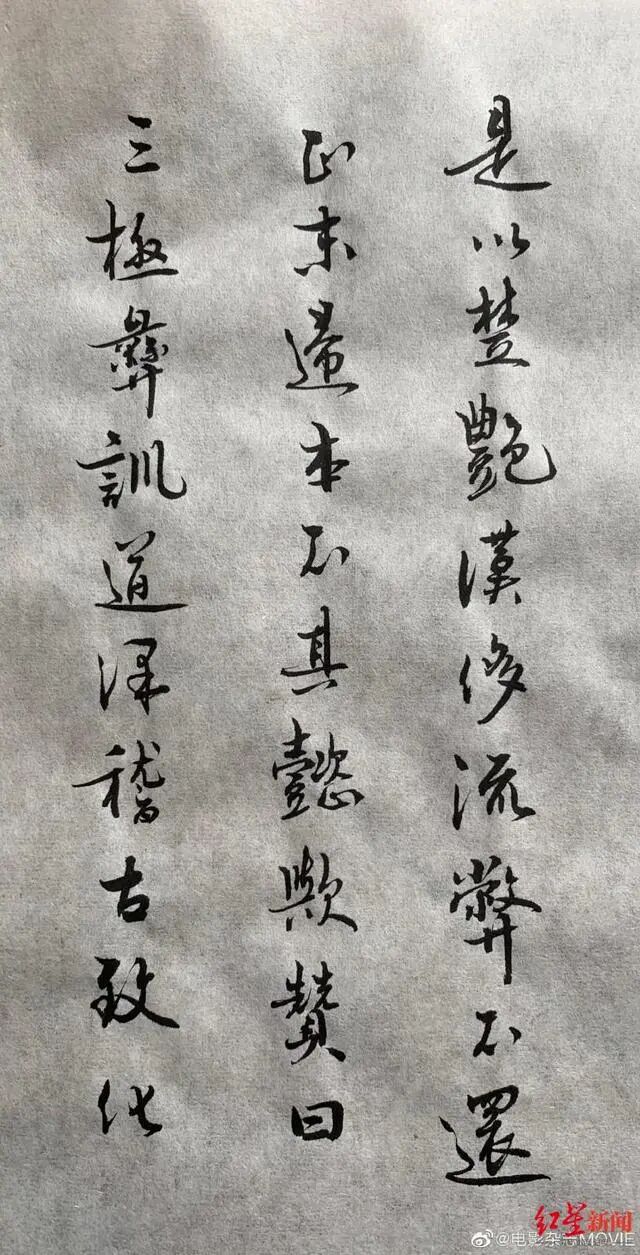 是以楚艷漢侈流弊不還
正末歸本不其懿歟贊曰
三極彝訓道深稽古致化
红星新闻
@电影杂志MOVIE